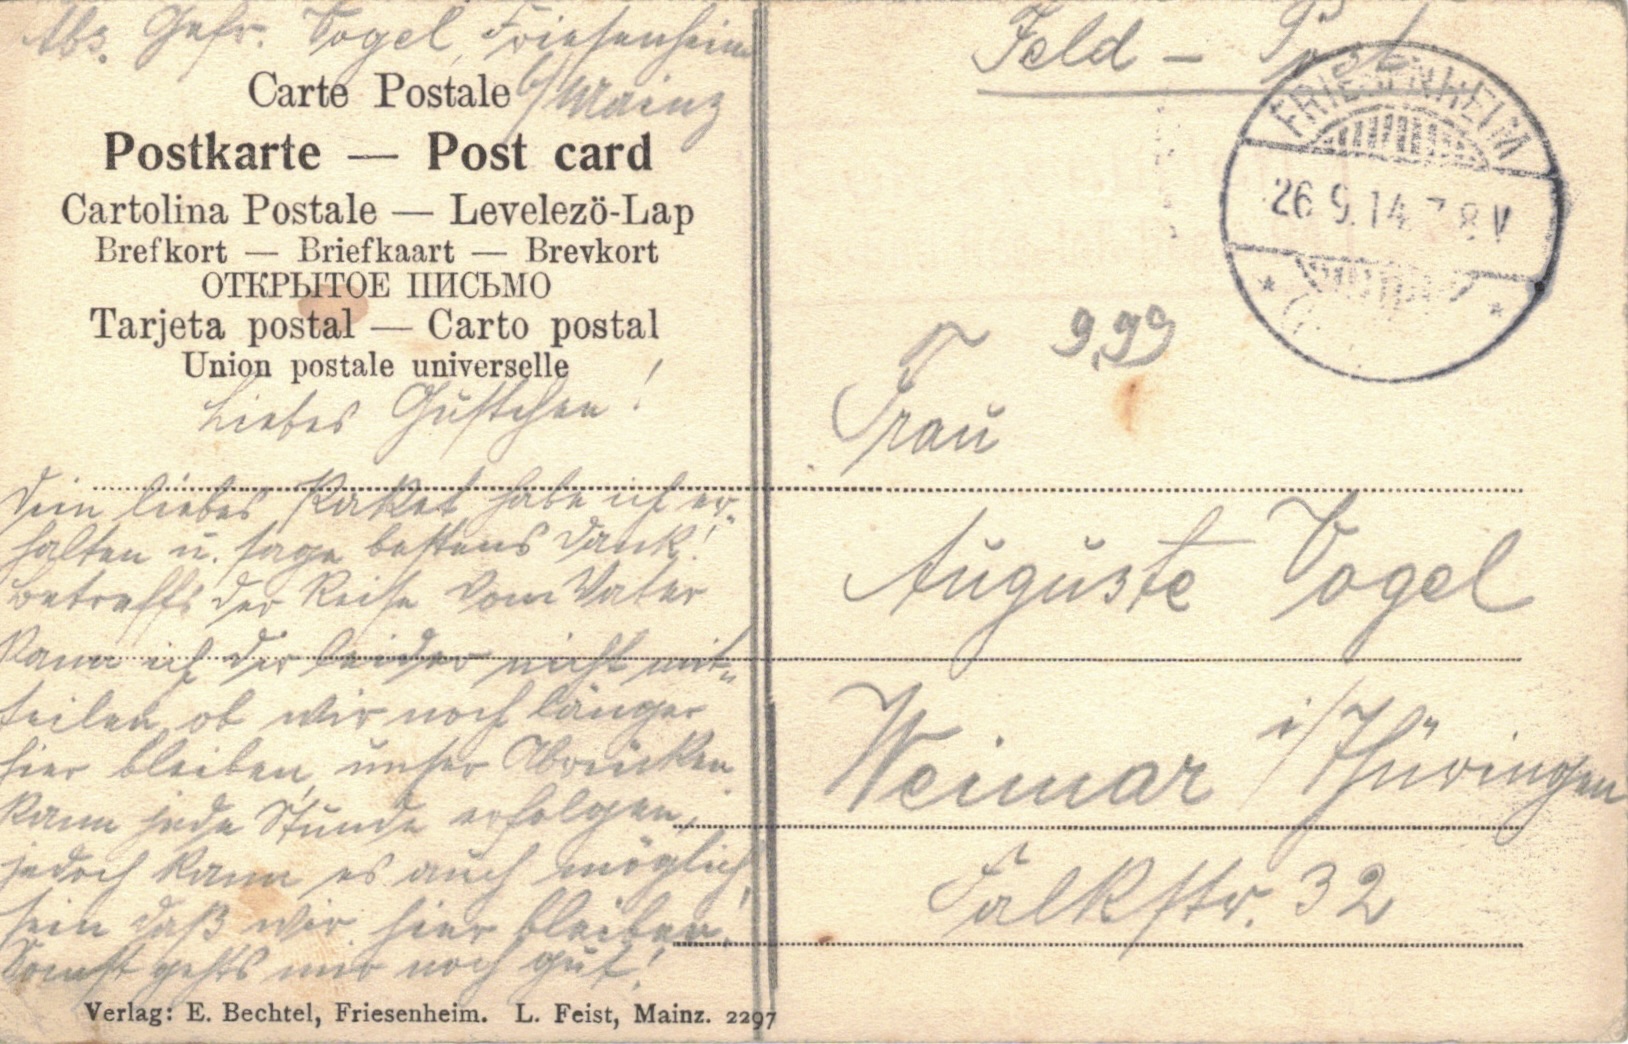 Abs. Gefr. Vogel, Friesenheim
b/Mainz
Carte Postale
Postkarte — Post card
Cartolina Postale — Levelezö-Lap
Brefkort — Briefkaart — Brevkort
ОТКРЫТОЕ ПИСЬМО
Tarjeta postal — Carto postal
Union postale universelle
Liebes Gustchen!
Dein liebes Packet habe ich er-
halten u. sage bestens Dank!
betreffs der Reise vom Vater
kann ich Dir leider nicht mit-
teilen, ob wir noch länger
hier bleiben, unser Abrücken
kann jede Stunde erfolgen,
jedoch kann es auch möglich
sein daß wir hier bleiben.
Sonst gehts mir noch gut!
Verlag: E. Bechtel, Friesenheim. L. Feist, Mainz. 2297
Feld - Post
FRIESENHEIM
26.9.14. 7-8 V
9,99
Frau
Auguste Vogel
Weimar i/Thüringen
Falkstr. 32